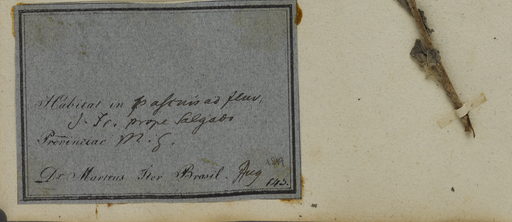 Habitat in pascuis ad fluv.
S. Fr. prope Salgado
Provinciae M. G.
Dr. Martius Iter Brasil. Aug